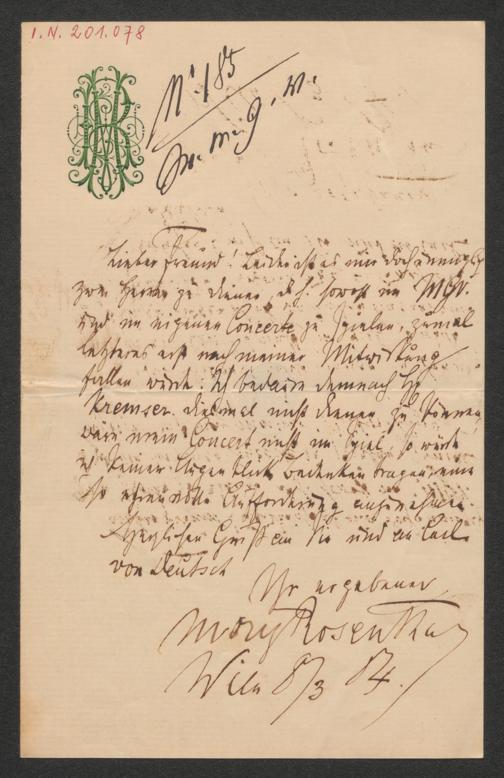 I. N. 201.078
MR
No 185
Lieber Freund! Leider ist es mir doch unmöglich
zwei Herren zu dienen, d. h. sowohl im MGV.
und im eigenen Concerte zu spielen, zumal
letzteres erst nach meiner Mitwirkung
fallen würde. Ich bedaure demnach H.
Kremser diesmal nicht dienen zu können,
wäre mein Concert nicht im Spiel, so würde
ich keinen Augenblick Bedenken tragen eine
so ehrenvolle Aufforderung anzunehmen.
Herzlichen Gruß an Sie und an Carl
von Deutsch
Ihr ergebener
Moriz Rosenthal
Wien 8/3 84.